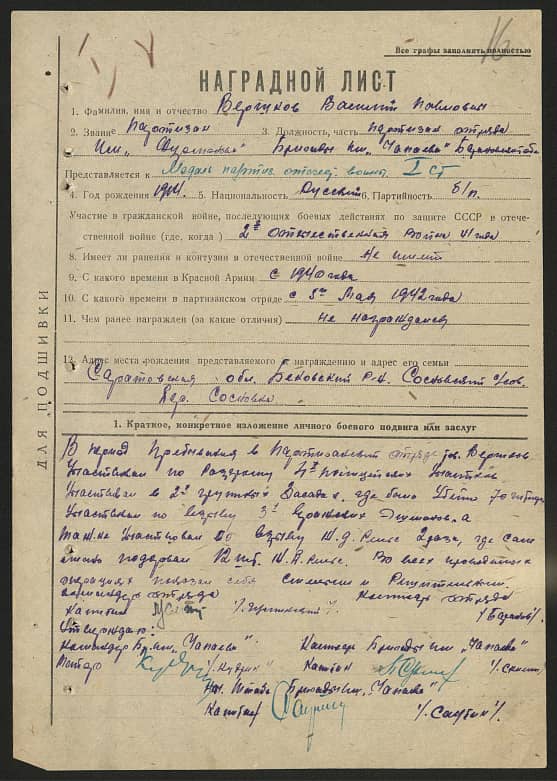 16
Все графы заполнять полностью
НАГРАДНОЙ ЛИСТ
1. Фамилия, имя и отчество Вергунов Василий Павлович
2. Звание партизан 3. Должность, часть партизан отряда
им. Бригады им. „Чапаева"
Представляется к Медаль партиз. отечед. войны I ст
4. Год рождения 5. Национальность Русский 6. Партийность б/п.
Участие в гражданской войне, последующих боевых действиях по защите СССР и отече-
ственной войне (где, когда) 2й отечественная война 41 года
8. Имеет ли ранения и контузии в отечественной войне не имеет
9. С какого времени в Красной Армии с 1940 года
10. С какого времени в партизанском отряде с 5го Мая 1942 года
11. Чем ранее награжден (за какие отличия) не награждался
12. Адрес места рождения представляемого к награждению и адрес его семьи
Саратовская обл. Бековский Р-н. Сосновский с/сов.
дер. Сосновка
ДЛЯ ПОДШИВКИ
1. Краткое, конкретное изложение личного боевого подвига или заслуг
В период пребывания в партизанском отряде тов.
Участвовал по разгрому 4х полицейских участков
Участвовал в 2х крупных засадах, где было убито 70 гитлер.
Участвовал по взрыву 3х вражеских эшелонов. а
также участвовал по взрыву Ж.Д. рельс 2 раза, где сам
лично подорвал 12 шт. Ж.Д. рельс. Во всех проводимых
операциях показал себя смелым и решительным.
командир отряда комиссар отряда
капитан
Утверждаю:
Командир Бр. им. „Чапаева" Комиссар Бригады им. „Чапаева"
Майор /. Кудрин /. Капитан
Нач. Штаба Бригады им. „Чапаева"
Капитан